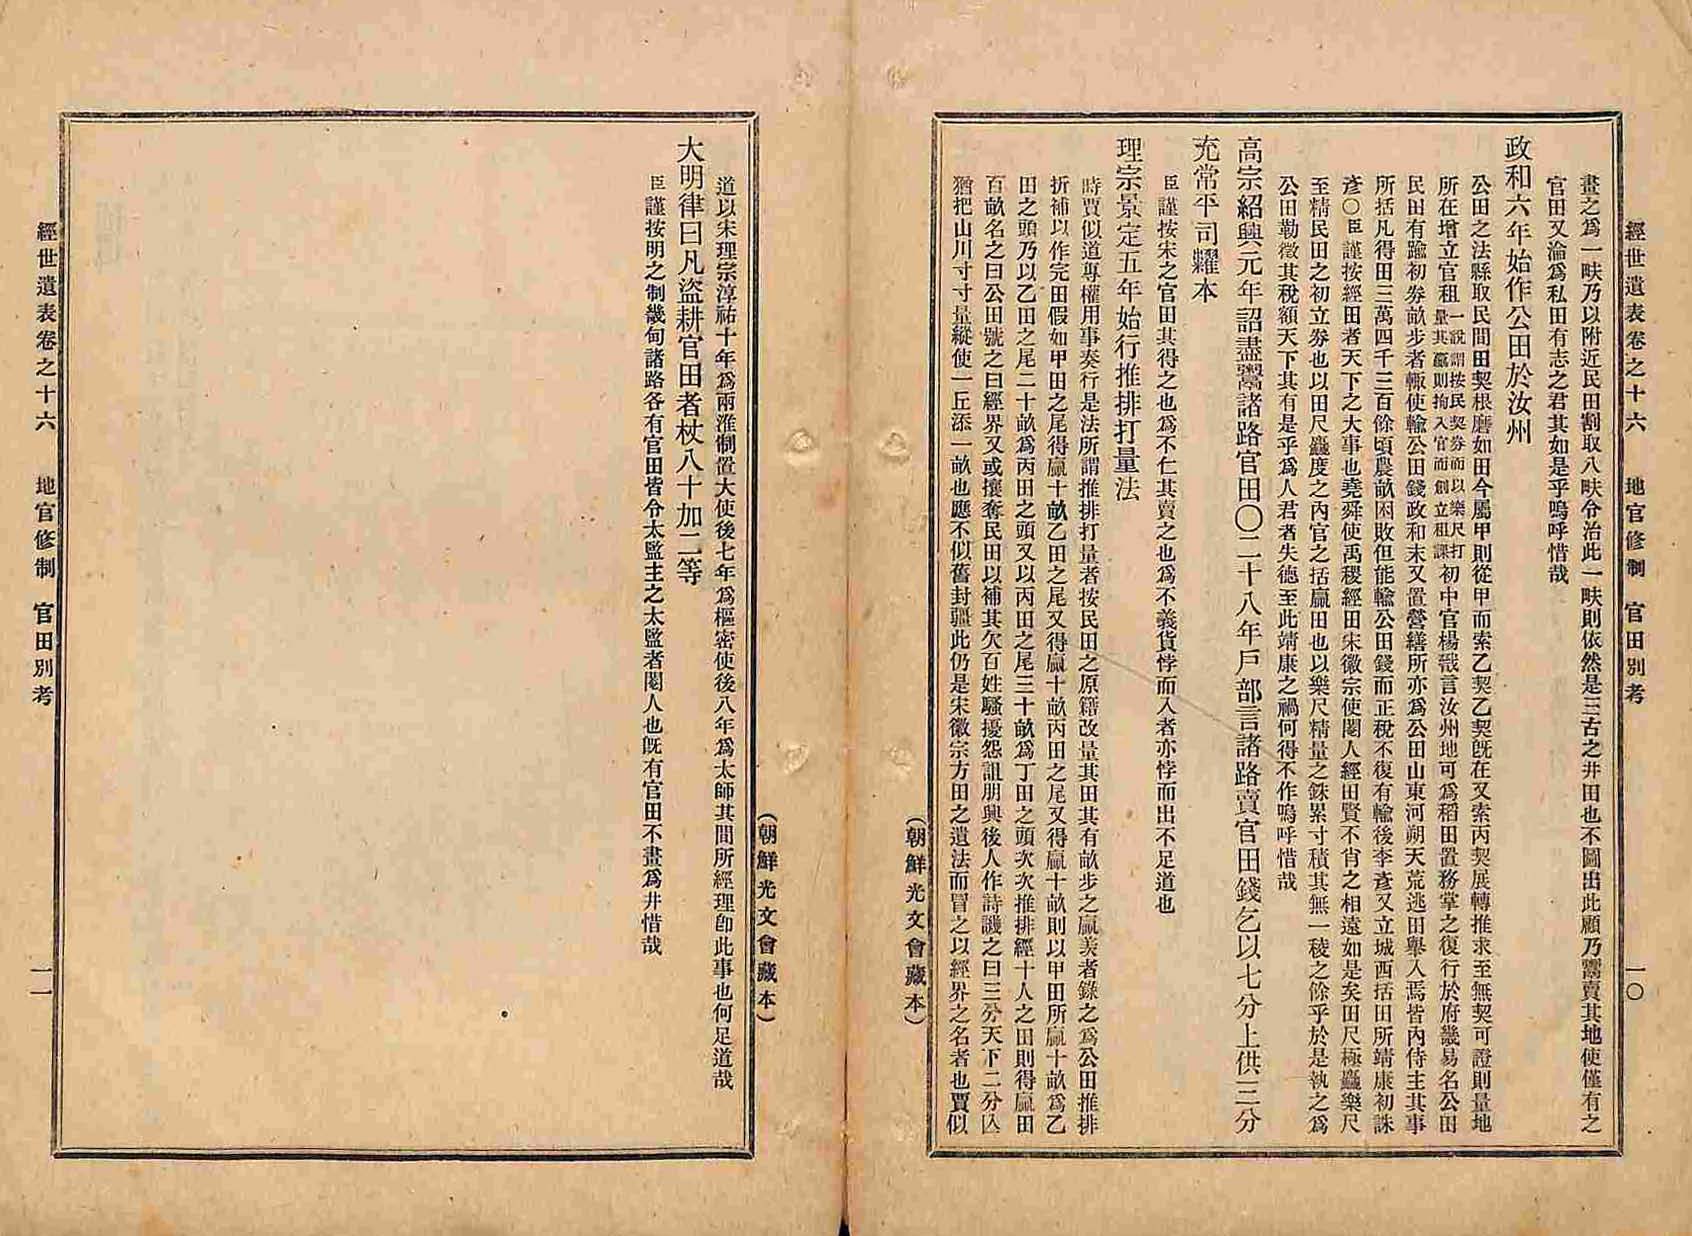 經世遺表卷之十六 地官修制 官田別考 一〇
畫之爲一畉乃以附近民田割取八畉令治此一畉則依然是三古之井田也不圖出此顧乃鬻賣其地使僅有之
官田又淪爲私田有志之君其如是乎嗚呼惜哉
政和六年始作公田於汝州
公田之法縣取民間田契根磨如田今屬甲則從甲而索乙契乙契旣在又索丙契展轉推求至無契可證則量地
所在增立官租一說謂按民契券而以樂尺打量其贏則拘入官而創立租課初中官楊戩言汝州地可爲稻田置務掌之復行於府畿易名公田
民田有踰初券畝步者輒使輸公田錢政和末又置營繕所亦爲公田山東河朔天荒逃田舉入焉皆內侍主其事
所括凡得田三萬四千三百餘頃農畝困敗但能輸公田錢而正稅不復有輸後李彥又立城西括田所靖康初誅
彥〇臣謹按經田者天下之大事也堯舜使禹稷經田宋徽宗使閹人經田賢不肖之相遠如是矣田尺極麤樂尺
至精民田之初立券也以田尺麤度之內官之括贏田也以樂尺精量之銖累寸積其無一稜之餘乎於是執之爲
公田勒徵其稅額天下其有是乎爲人君者失德至此靖康之禍何得不作嗚呼惜哉
高宗紹興元年詔盡鬻諸路官田〇二十八年戶部言諸路賣官田錢乞以七分上供三分
充常平司糶本
臣謹按宋之官田其得之也爲不仁其賣之也爲不義貨悖而入者亦悖而出不足道也
理宗景定五年始行推排打量法
時賈似道專權用事奏行是法所謂推排打量者按民田之原籍改量其田其有畝步之贏羨者錄之爲公田推排
折補以作完田假如甲田之尾得贏十畝乙田之尾又得贏十畝丙田之尾又得贏十畝則以甲田所贏十畝爲乙
田之頭乃以乙田之尾二十畝爲丙田之頭又以丙田之尾三十畝爲丁田之頭次次推排經十人之田則得贏田
百畝名之曰公田號之曰經界又或攘奪民田以補其欠百姓騷擾怨詛朋興後人作詩譏之曰三分天下二分亾
猶把山川寸寸量縱使一丘添一畝也應不似舊封疆此仍是宋徽宗方田之遺法而冒之以經界之名者也賈似
(朝鮮光文會藏本)
(朝鮮光文會藏本)
道以宋理宗淳祐十年爲兩淮制置大使後七年爲樞密使後八年爲太師其間所經理卽此事也何足道哉
大明律曰凡盜耕官田者杖八十加二等
臣謹按明之制畿甸諸路各有官田皆令太監主之太監者閹人也旣有官田不畫爲井惜哉
經世遺表卷之十六 地官修制 官田別考 一一